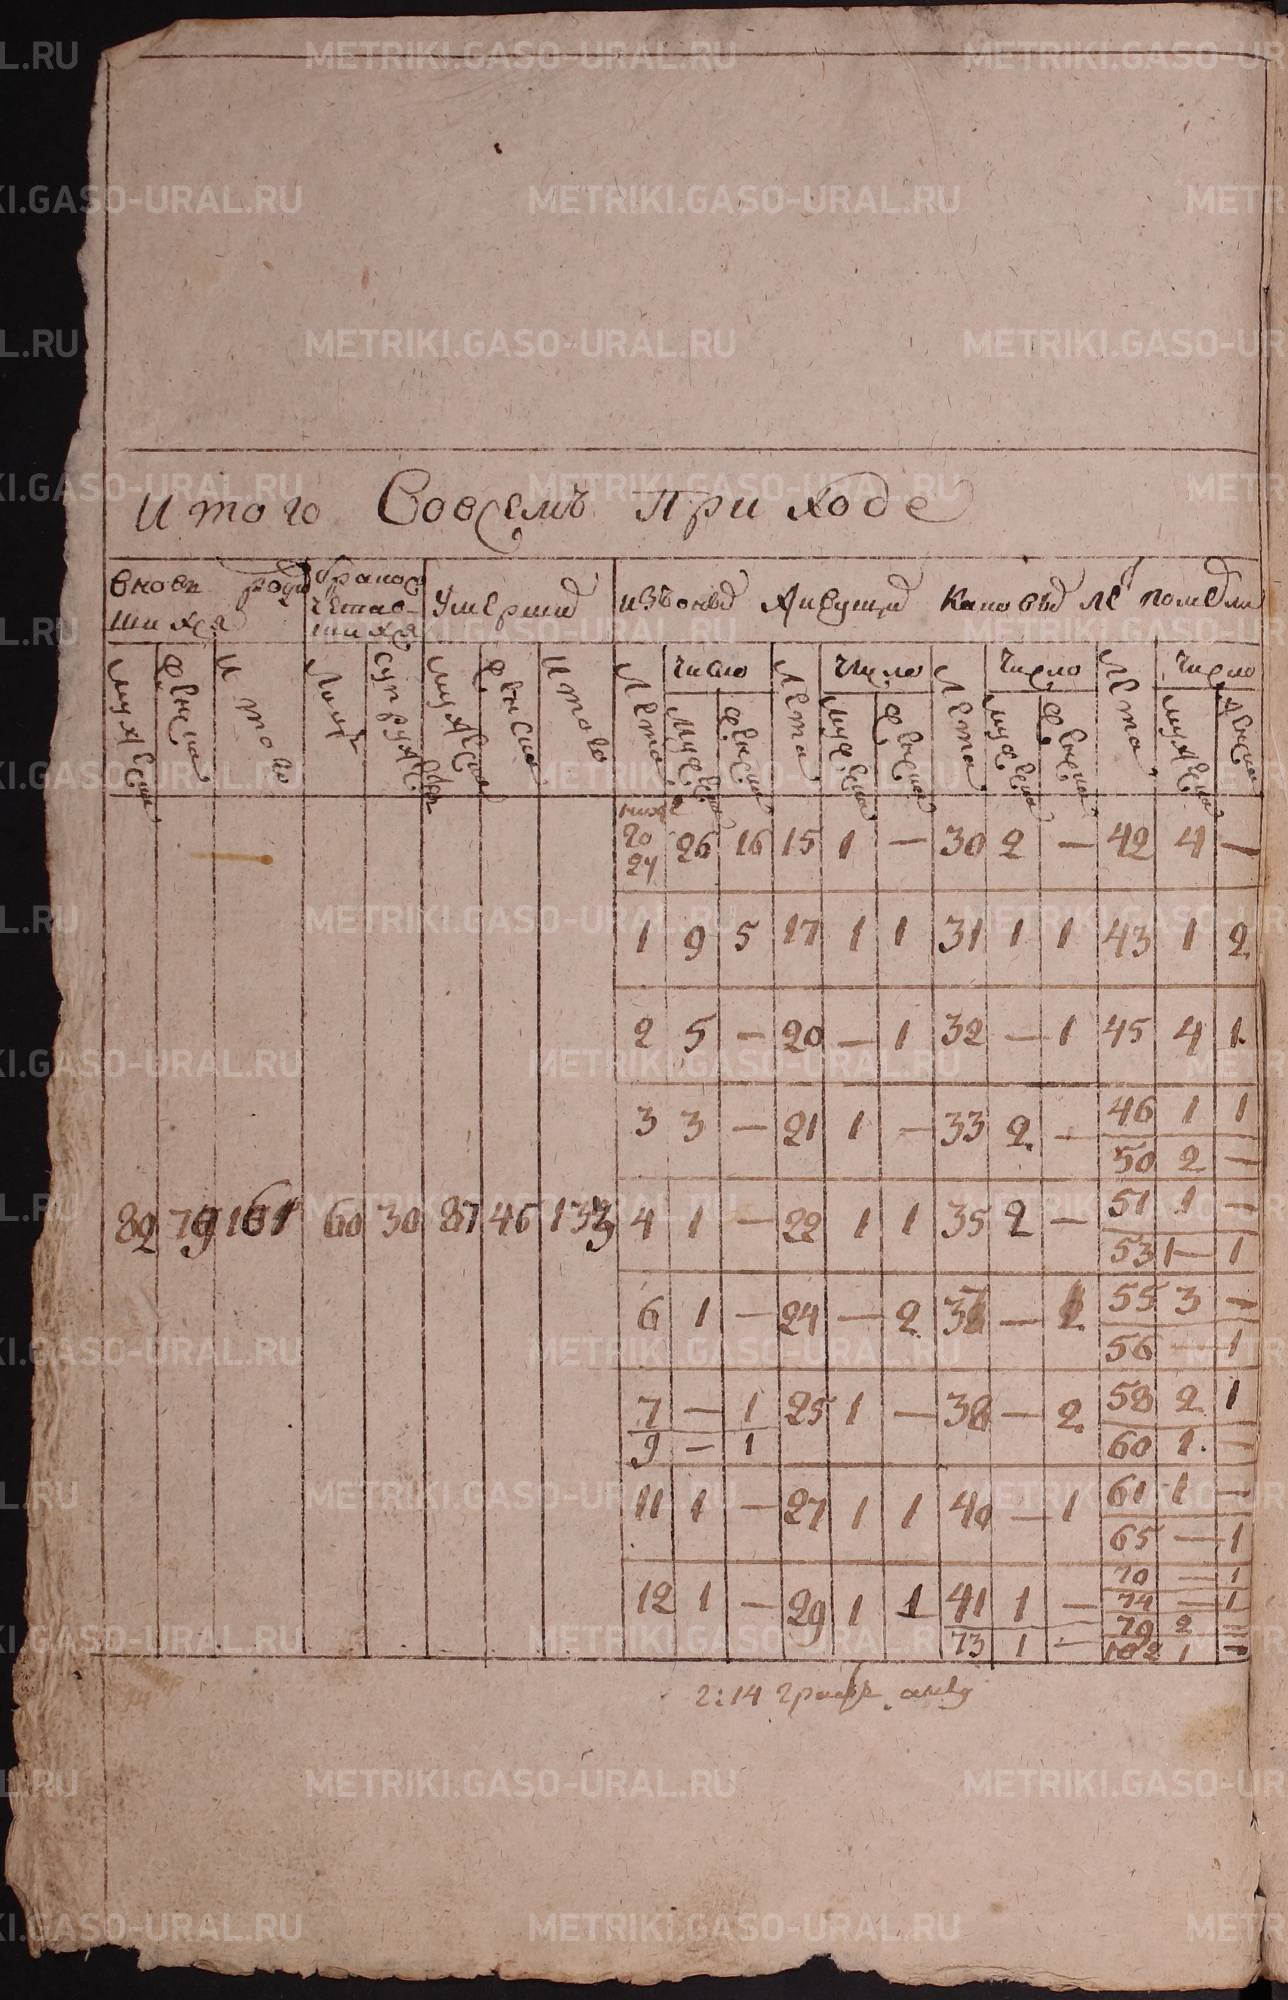 Итого Вовсемъ приходе
вновь роди
шихся
бракосо
четав-
шихся
умершие
изъ оныхъ живущихъ каковыхъ летъ померли
мужеска
женска
Итого
лицъ
супружествъ
мужеска
женска
Итого
Лета
число
Лета
число
Лета
число
Лета
число
мужеска
женска
мужеска
женска
мужеска
женска
мужеска
женска
ниже
20 26 16 15 1 — 30 2 — 42 4 —
1 9 5 17 1 1 31 1 1 43 1 2
2 5 — 20 — 1 32 — 1 45 4 1
3 3 — 21 1 — 33 2 — 46 1 1
50 2 —
82 79 161 60 30 87 46 133 4 1 — 22 1 1 35 2 — 51 1 —
53 1 — 1
6 1 — 24 — 2 — 55 3 —
56 — 1
7 — 1 25 1 — 38 — 2 58 2 1
9 — 1 60 1 —
11 1 — 27 1 1 40 — 1 61 1 —
65 — 1
12 1 — 29 1 1 41 1 — 70 — 1
74 — 1
73 1 — 79 2 —
102 1 —
METRIKI.GASO-URAL.RU